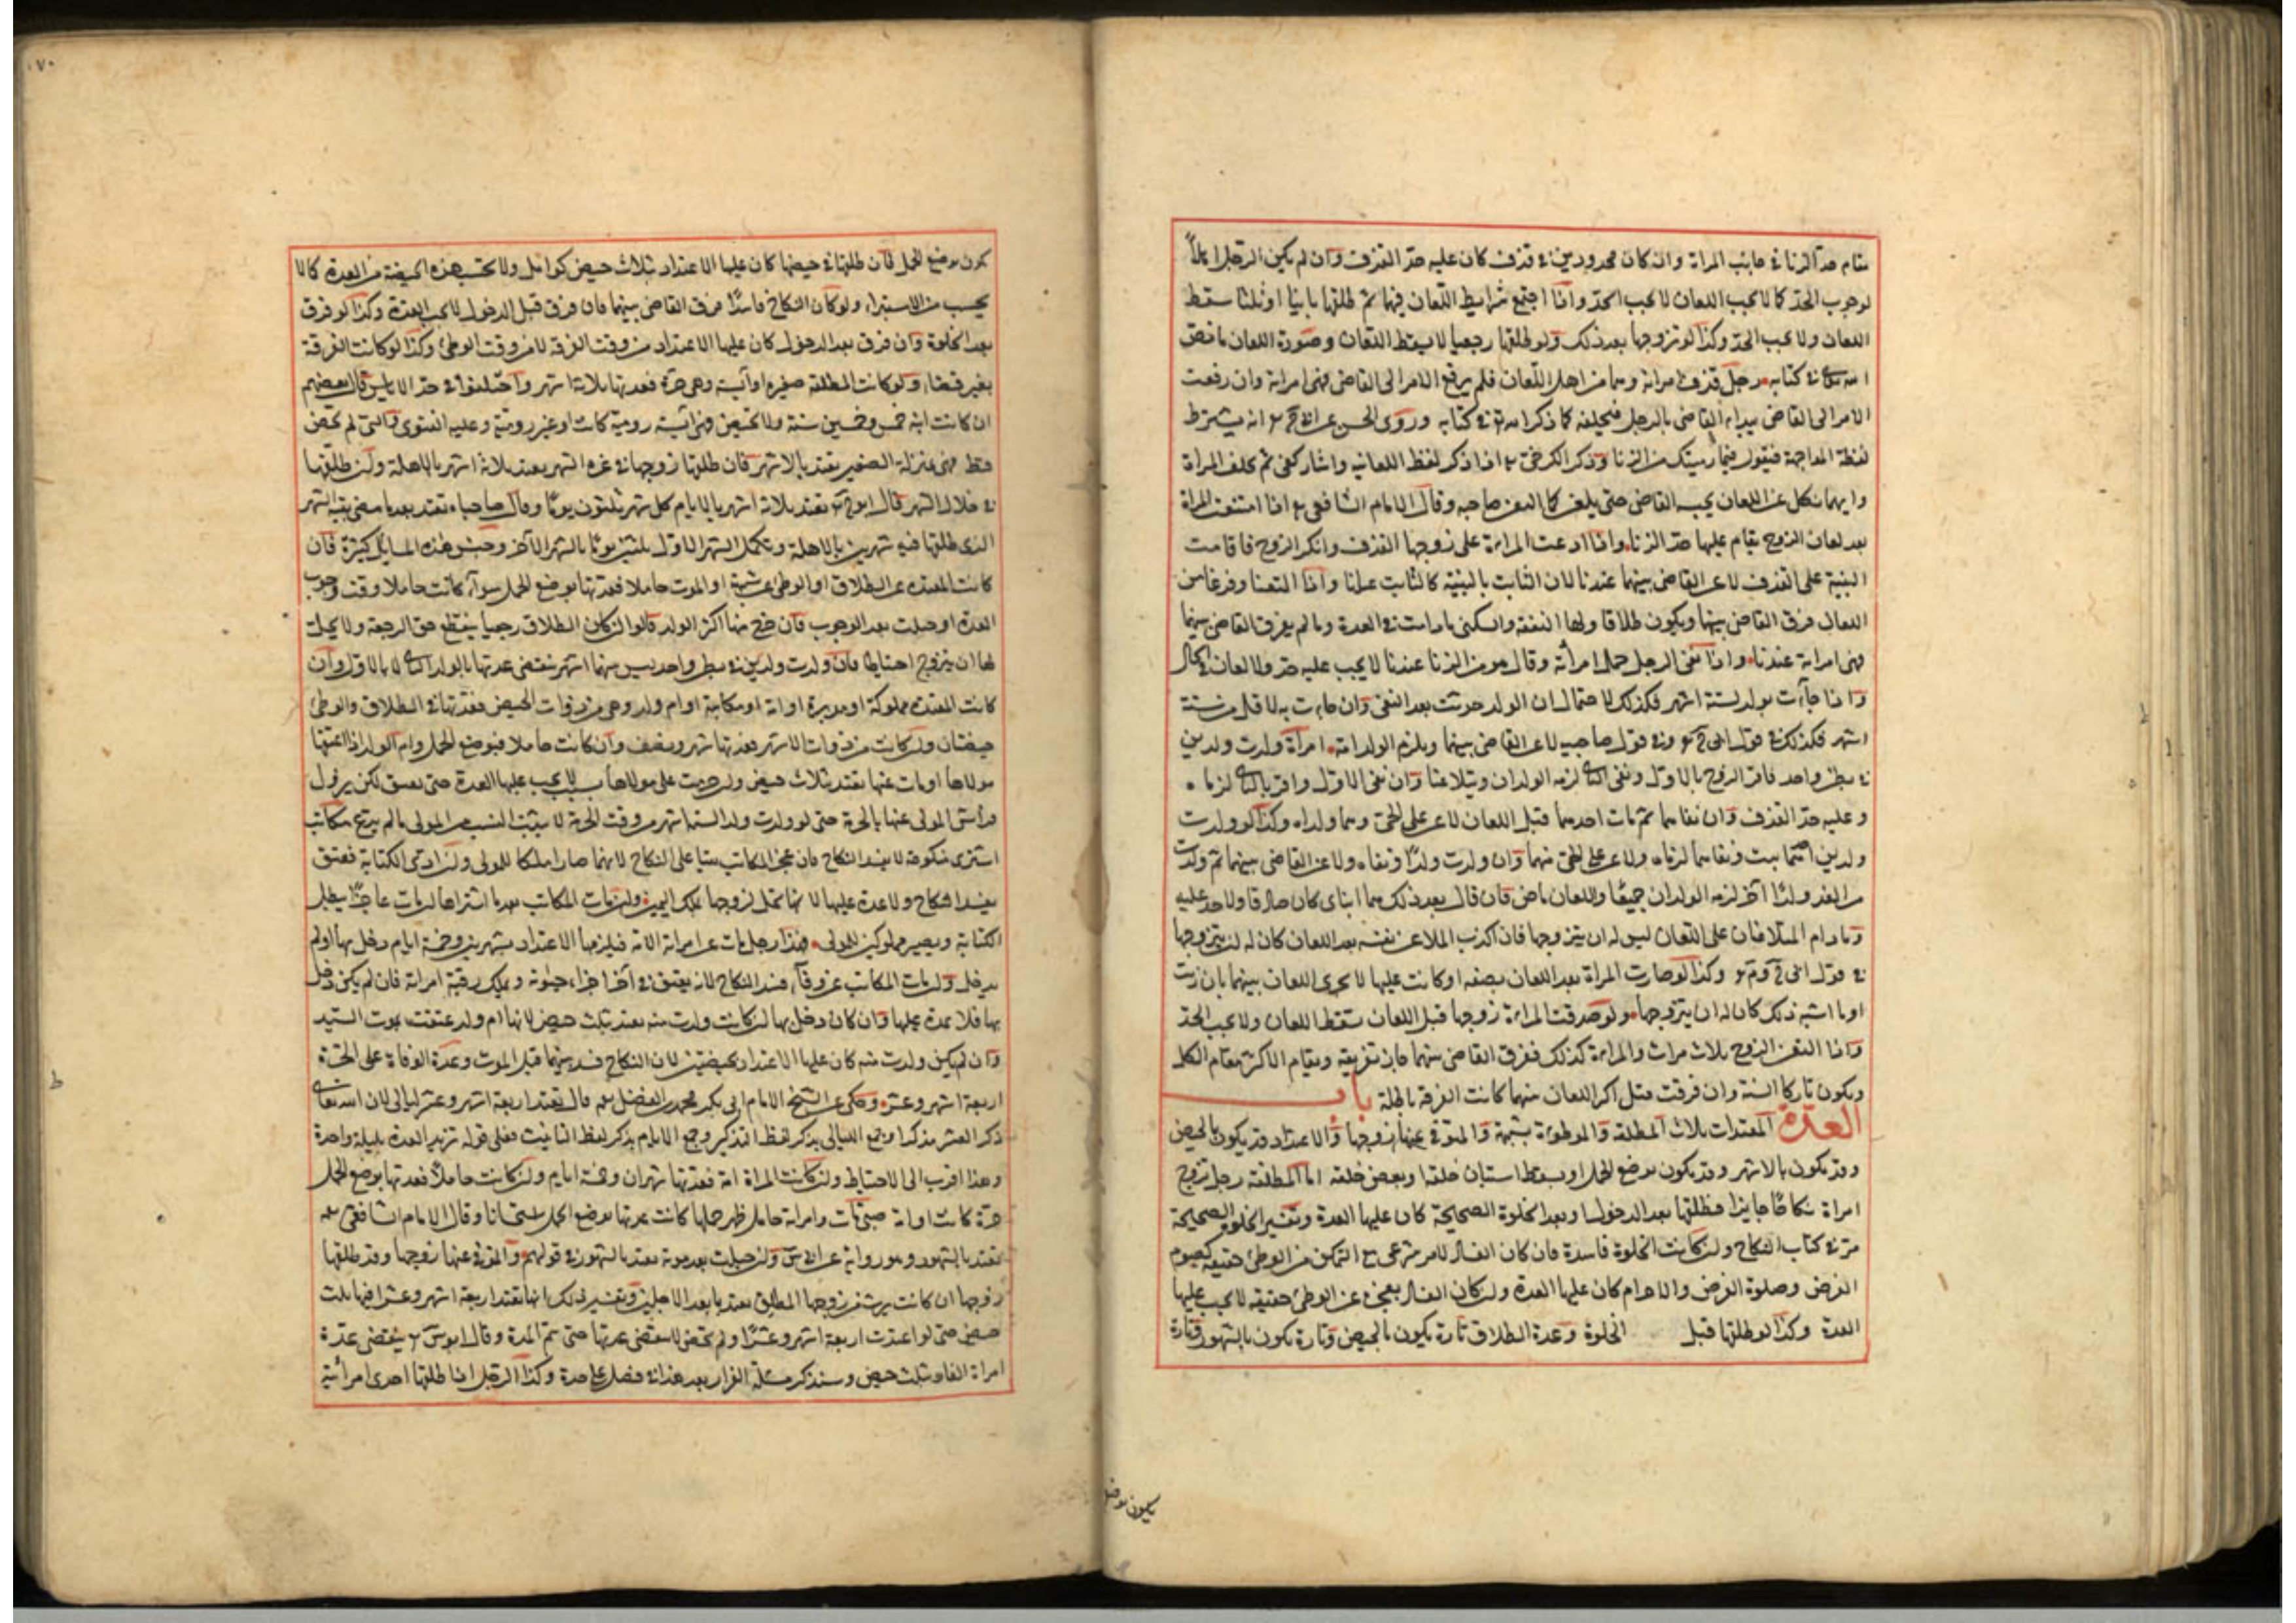 مقام حد الزنا في جانب المراة وان كان محدودين في قذف كان عليه حد القذف وان لم يكن الرجل اهلاً
لوجوب الحد كما لا يجب اللعان لا يجب الحد واذا اجتمع شرايط اللعان فيهما ثم طلقها باينا او ثلثا سقط
اللعان ولا يجب الحد وكذا لو تزوجها بعد ذلك ولو طلقها رجعيا لا يسقط اللعان وصورة اللعان ما نص
الله تعالى في كتابه رجل قذف امراته وهما من اهل اللعان فلم يرفع الامر الى القاضي فهي امراته وان رفعت
الامر الى القاضي يبداء القاضي بالرجل فيحلفه كما ذكر الله في كتابه وروى الحسن عن ابي ح انه يشترط
لفظة المواجهة فيقول فيما رميتك من الزنا وذكر الكرخي اذا ذكر لفظ اللعانيه واشار كفى ثم يحلف المراة
وايهما نكل عن اللعان يحبسه القاضي حتى يلعن كما التعن صاحبه وقال الامام الشافعي اذا امتنعت المراة
بعد لعان الزوج يقام عليها حد الزنا واذا ادعت المراءة على زوجها القذف وانكر الزوج فاقامت
البينة على القذف لاعن القاضي بينهما عندنا لان الثابت بالبينة كالثابت عيانا واذا التعنا وفرغا من
اللعان فرق القاضي بينهما ويكون طلاقا ولها النفقة والسكنى ما دامت في العدة وما لم يفرق القاضي بينهما
فهي امراته عندنا واذا نفى الرجل حمل امرأته وقال هو من الزنا عندنا لا يجب عليه حد ولا لعان في الحال
واذا جاءت بولد لستة اشهر فكذلك لاحتمال ان الولد حدثت بعد النفي وان جاءت به لاقل من ستة
اشهر فكذلك في قول ابي ح وفي قول صاحبيه لاعن القاضي بينهما ويلزم الولد امه امرأة ولدت ولدين
في بطن واحد فاقر الزوج بالاول ونفى الثاني لزمه الولدان ويتلاعنا وان نفى الاول واقر بالثاني لزماه
وعليه حد القذف وان نفاهما ثم مات احدهما قبل اللعان لاعن على الحي وهما ولداه وكذا لو ولدت
ولدين احدهما ميت ونفاهما لزماه ولاعن على الحي منهما وان ولدت ولدًا ونفاه ولاعن القاضي بينهما ثم ولدت
من الغد ولدًا آخر لزمه الولدان جميعًا واللعان ماض فان قال بعد ذلك هما ابناي كان صادقا ولا حد عليه
وما دام المتلاعنان على اللعان ليس له ان يتزوجها فان اكذب الملاعن نفسه بعد اللعان كان له ان يتزوجها
في قول ابي ح وم وكذا لو صارت المراة بعد اللعان بصفه لو كانت عليها لا يجرى اللعان بينهما بان زنت
او ما اشبه ذلك كان له ان يتزوجها ولو صدقت المراءة زوجها قبل اللعان سقط اللعان ولا يجب الحد
واذا التعن الزوج ثلاث مرات والمراءة كذلك ففرق القاضي بينهما جاز تفريقه ويقام الاكثر مقام الكل
ويكون تاركا السنة وان فرقت قبل اكثر اللعان منهما كانت الفرقة باطلة باب
العدة المعتدات ثلاث المطلقة والموطوءة بشبهة والمتوفى عنها زوجها والاعتداد قد يكون بالحيض
وقد يكون بالاشهر وقد يكون بوضع الحمل او بسقط استبان خلقه او بعض خلقه اما المطلقة رجل تزوج
امراة نكاحًا جايزا فطلقها بعد الدخول او بعد الخلوة الصحيحة كان عليها العدة وتفسير الخلوة الصحيحة
مر في كتاب النكاح وان كانت الخلوة فاسدة فان كان الفساد لامر شرعي مع التمكن من الوطئ حقيقه كصوم
الفرض وصلوة الفرض والاحرام كان عليها العدة وان كان الفساد بعجز عن الوطئ حقيقة لا يجب عليها
العدة وكذا لو طلقها قبل الخلوة وعدة الطلاق تارة يكون بالحيض وتارة يكون بالشهور وتارة
يكون بوضع
يكون بوضع الحمل فان طلقها في حيضها كان عليها الاعتداد بثلاث حيض كوامل ولا تحتسب هذه الحيضة من العدة كما لا
يحسب من الاستبراء ولو كان النكاح فاسدًا ففرق القاضي بينهما فان فرق قبل الدخول لا يجب العدة وكذا لو فرق
بعد الخلوة وان فرق بعد الدخول كان عليها الاعتداد من وقت الفرقة لا من وقت الوطئ وكذا لو كانت الفرقة
بغير قضاء ولو كانت المطلقة صغيرة او آيسة وهي حرة فعدتها ثلاثة اشهر واختلفوا في حد الاياس قال بعضهم
ان كانت ابنة خمس وخمسين سنة ولا تحيض فهي آئسة رومية كانت او غير رومية وعليه الفتوى والتي لم تحض
قط فهي بمنزلة الصغير يعتد بالاشهر فان طلقها زوجها في غرة الشهر يعتد ثلاثة اشهر بالاهلة وان طلقها
في خلال الشهر قال ابو ح تعتد ثلاثة اشهر بالايام كل شهر ثلثون يومًا وقال صاحباه تعتد بعد ما مضى بقية الشهر
الذي طلقها فيه شهرين بالاهلة وتكمل الشهر الاول ثلثين يومًا بالشهر الآخر وجنس هذه المسايل كثيرة فان
كانت المعتدة عن الطلاق او الوطئ عن شبهة او الموت حاملا فعدتها بوضع الحمل سوآء كانت حاملا وقت وجوب
العدة او حبلت بعد الوجوب فان خرج منها اكثر الولد قالوا ان كان الطلاق رجعيا ينقطع حق الرجعة ولا يحل
لها ان يتزوج احتياطا فان ولدت ولدين في بطن واحد ليس بينهما اشهر تنقضي عدتها بالولد الثاني لا بالاول وان
كانت المعتدة مملوكة او مدبرة او امة او مكاتبة او ام ولد وهي من ذوات الحيض فعدتها في الطلاق والوطئ
حيضتان وان كانت من ذوات الاشهر فعدتها شهر ونصف وان كانت حاملا فبوضع الحمل وام الولد اذا اعتقها
مولاها او مات عنها تعتد بثلاث حيض وان حرمت على مولاها بسبب لا يجب عليها العدة حتى يعتق لكن يزول
فراش المولى عنها بالحرمة حتى لو ولدت ولدا لستة اشهر من وقت الحرمة لا يثبت النسب من المولى ما لم يدع مكاتب
اشترى منكوحته لا يفسد النكاح فان عجز المكاتب بقيا على النكاح لانهما صارا ملكا للمولى وان ادى الكتابة فعتق
يفسد النكاح ولا عدة عليها لانها تحل لزوجها بملك اليمين وان مات المكاتب بعد ما اشتراها ان مات عاجزًا يبطل
الكتابة ويصير مملوكين للمولى فهذا رجل مات عن امراته الامة فيلزمها الاعتداد بشهرين وخمسة ايام دخل بها او لم
يدخل وان مات المكاتب عن وفآء فسد النكاح لانه يعتق في آخر اجزاء حيوته ويملك رقبة امراته فان لم يكن دخل
بها فلا عدة عليها وان كان دخل بها ان كانت ولدت منه تعتد بثلث حيض لانها ام ولد عتقت بموت السيد
وان لم يكن ولدت منه كان عليها الاعتداد بحيضتين لان النكاح فسد بينهما قبل الموت وعدة الوفاة على الحرة
اربعة اشهر وعشر وحكى عن الشيخ الامام ابي بكر محمد بن الفضل قال تعتد اربعة اشهر وعشر ليالي لان الله تعالى
ذكر العشر مذكرا وجمع الليالي يذكر بلفظ التذكير وجمع الايام يذكر بلفظ التانيث فعلى قوله تزيد العدة بليلة واحدة
وهذا اقرب الى الاحتياط وان كانت المراة امة فعدتها شهران وخمسة ايام وان كانت حاملاً فعدتها بوضع الحمل
حرة كانت او امة صبي مات وامراته حامل ظهر حملها كانت عدتها بوضع الحمل استحسانا وقال الامام الشافعي
تعتد بالشهور وهو رواية عن ابي س وان حبلت بعد موته تعتد بالشهور في قولهم والمتوفى عنها زوجها وقد طلقها
زوجها ان كانت يرث من زوجها المطلق تعتد بابعد الاجلين وتفسير ذلك انها تعتد اربعة اشهر وعشرا فيها ثلث
حيض حتى لو اعتدت اربعة اشهر وعشرًا ولم تحض لا تنقضي عدتها حتى تتم المدة وقال ابو س ينقضي عدة
امراة الفار بثلث حيض وسنذكر مسئلة الفرار بعد هذا في فصل على حدة وكذا الرجل اذا طلقها احدى امرأتيه